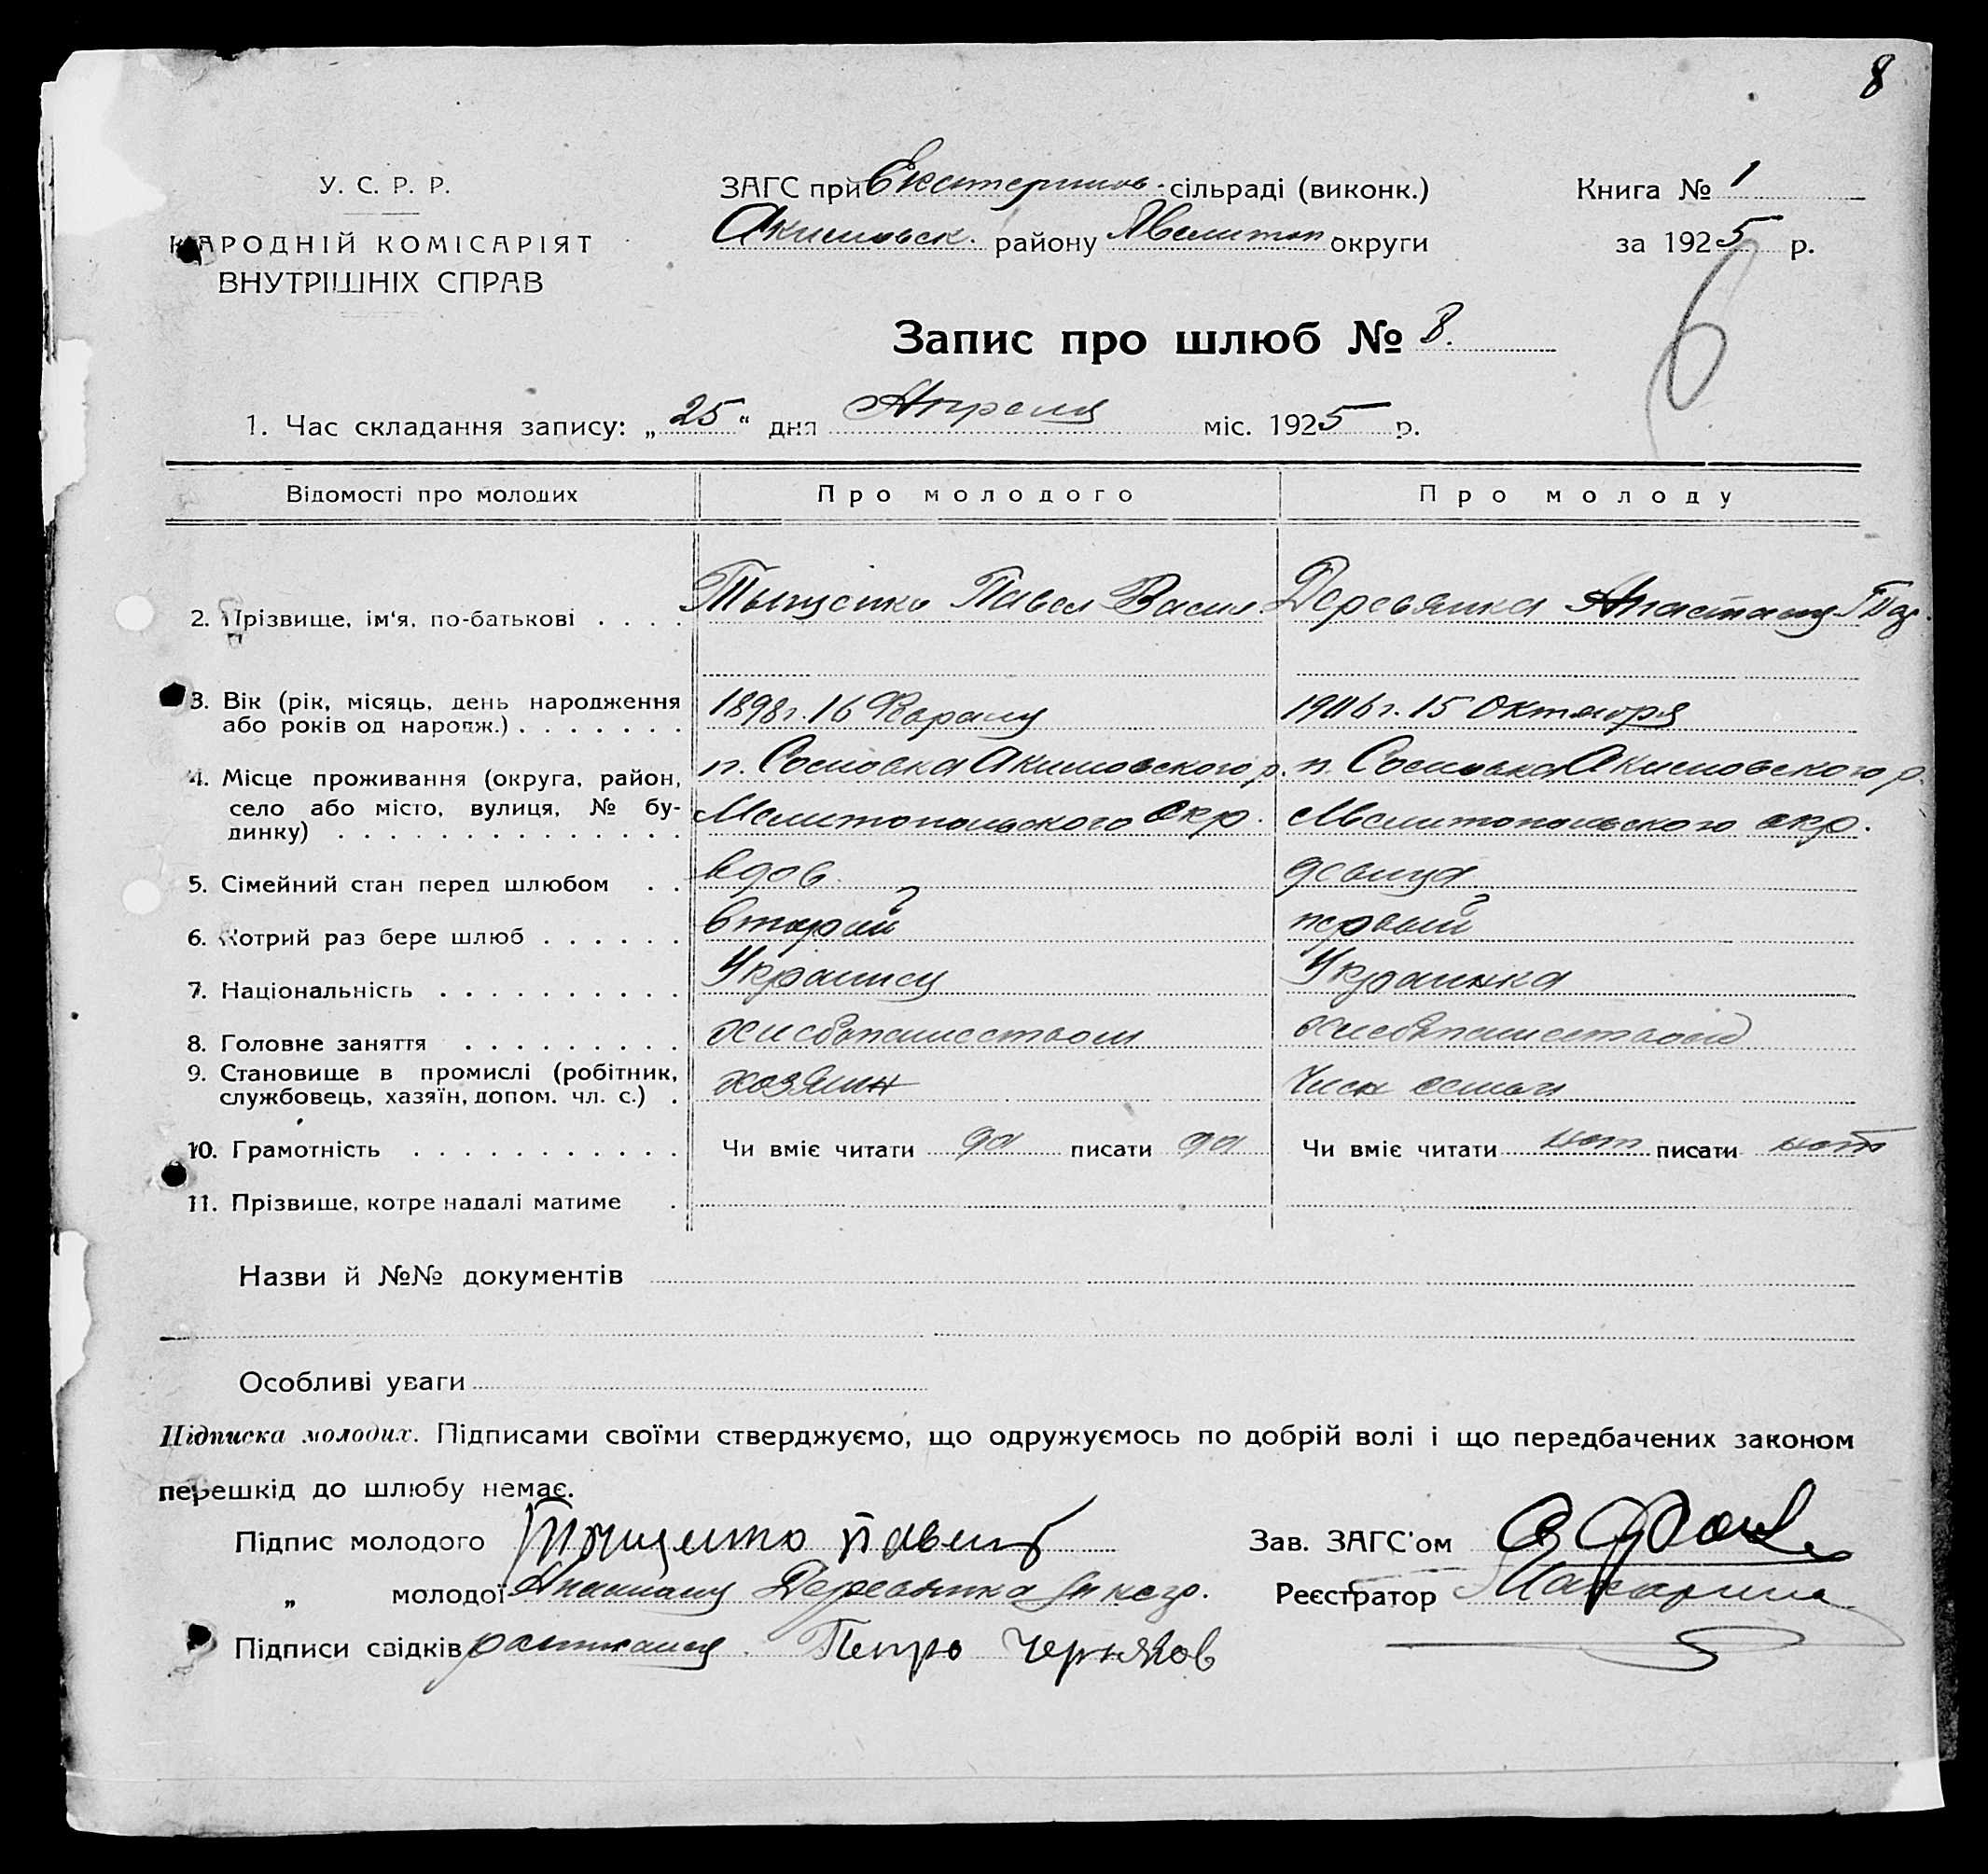 8
У. С. Р. Р.
НАРОДНІЙ КОМІСАРІЯТ
ВНУТРІШНІХ СПРАВ
ЗАГС при Екатеринов. сільраді (виконк.)
Акимовск. району Мелитоп округи
Книга № 1
за 1925 р.
6
Запис про шлюб № 8.
1. Час складання запису: „25“ дня Апреля міс. 1925 р.
Відомості про молодих Про молодого Про молоду
2. Прізвище, ім'я, по-батькові . . . . Тыщенко Павел Васил. Деревянка Анастасия
3. Вік (рік, місяць, день народження 1898 г. 16 1906 г. 15 Октября
або років од народж.) . . . . . . .
4. Місце проживання (округа, район, п. Сосновка Акимовского р. п. Сосновка Акимовского р.
село або місто, вулиця, № бу- Мелитопольского окр. Мелитопольского окр.
динку) . . . . . . . . . . . . . .
5. Сімейний стан перед шлюбом . . вдов. девица
6. Котрий раз бере шлюб . . . . . . второй первый
7. Національність . . . . . . . . . . Украинец Украинка
8. Головне заняття . . . . . . . . . хлебопашеством хлебопашеством
9. Становище в промислі (робітник, хозяин член семьи
службовець, хазяїн, допом. чл. с.) .
10. Грамотність . . . . . . . . . . . Чи вміє читати да писати да Чи вміє читати нет писати нет
11. Прізвище, котре надалі матиме .
Назви й №№ документів
Особливі уваги
Підписка молодих. Підписами своїми стверджуємо, що одружуємось по добрій волі і що передбачених законом
перешкід до шлюбу немає.
Підпис молодого Тыщенко Павел Зав. ЗАГС'ом
„ молодої Анастасия Деревянка негр. Реєстратор
Підписи свідків Петро Черняков